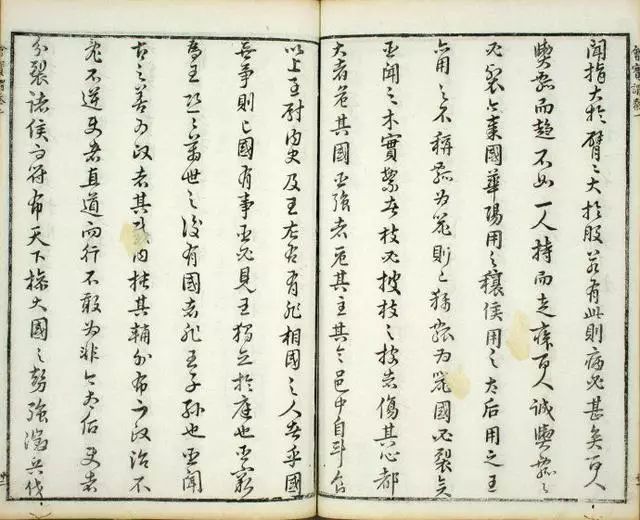 聞指大於臂〻大於股若有此則病必甚矣百人
輿瓢而趨不如一人持而走疾百人誠輿瓢〻
必裂今秦國華陽用之穰侯用之太后用之王
亦用之不稱瓢為器則已稱瓢為器國必裂矣
臣聞之木實繁者枝必披枝之披者傷其心都
大者危其國臣強者危其主其令邑中自斗食
以上至尉內史及王左右有非相國之人者乎國
無事則已國有事臣必見王獨立於庭也臣竊
為王恐〻萬世之後有國者非王子孫也臣聞
古之善為政者其威內扶其輔外布而政治不
亂不逆使者直道而行不敢為非今太后使者
分裂諸侯而符布天下操大國之勢強徵兵伐